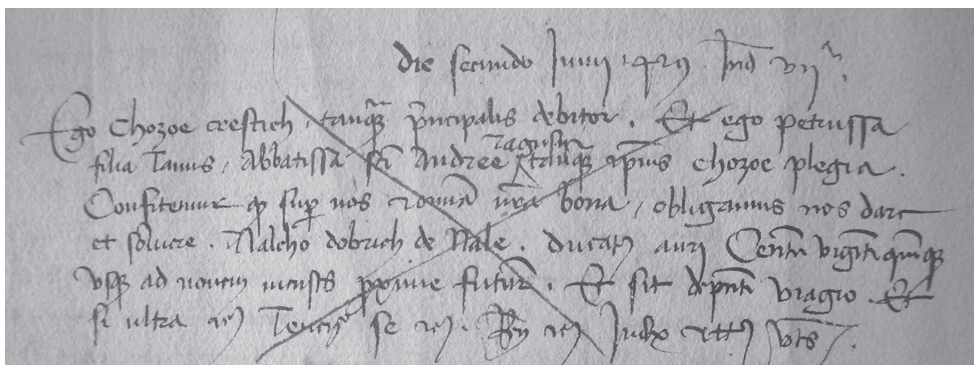 die secundo Junij 1429 Ind vij
Ego Chozoe crestich, tanq̃ p̃ncipalis debitor. Et ego petrussa
filia Tanus, Abbatissa sc̃i Andree Ragusij tanq̃ ip̃ius chozoe plegia.
Confitemur q̃ sup̃ nos et om̃ia nr̃a bona, obligamus nos dare
et soluere. Ralcho dobrich de Stale. ducatos auri Centũ viginti quinq̃
vsq̃ ad nouem menses proxime futur̃. Et sit de p̃nti viagio. Et
si ultra etc̃ se etc̃. etc̃